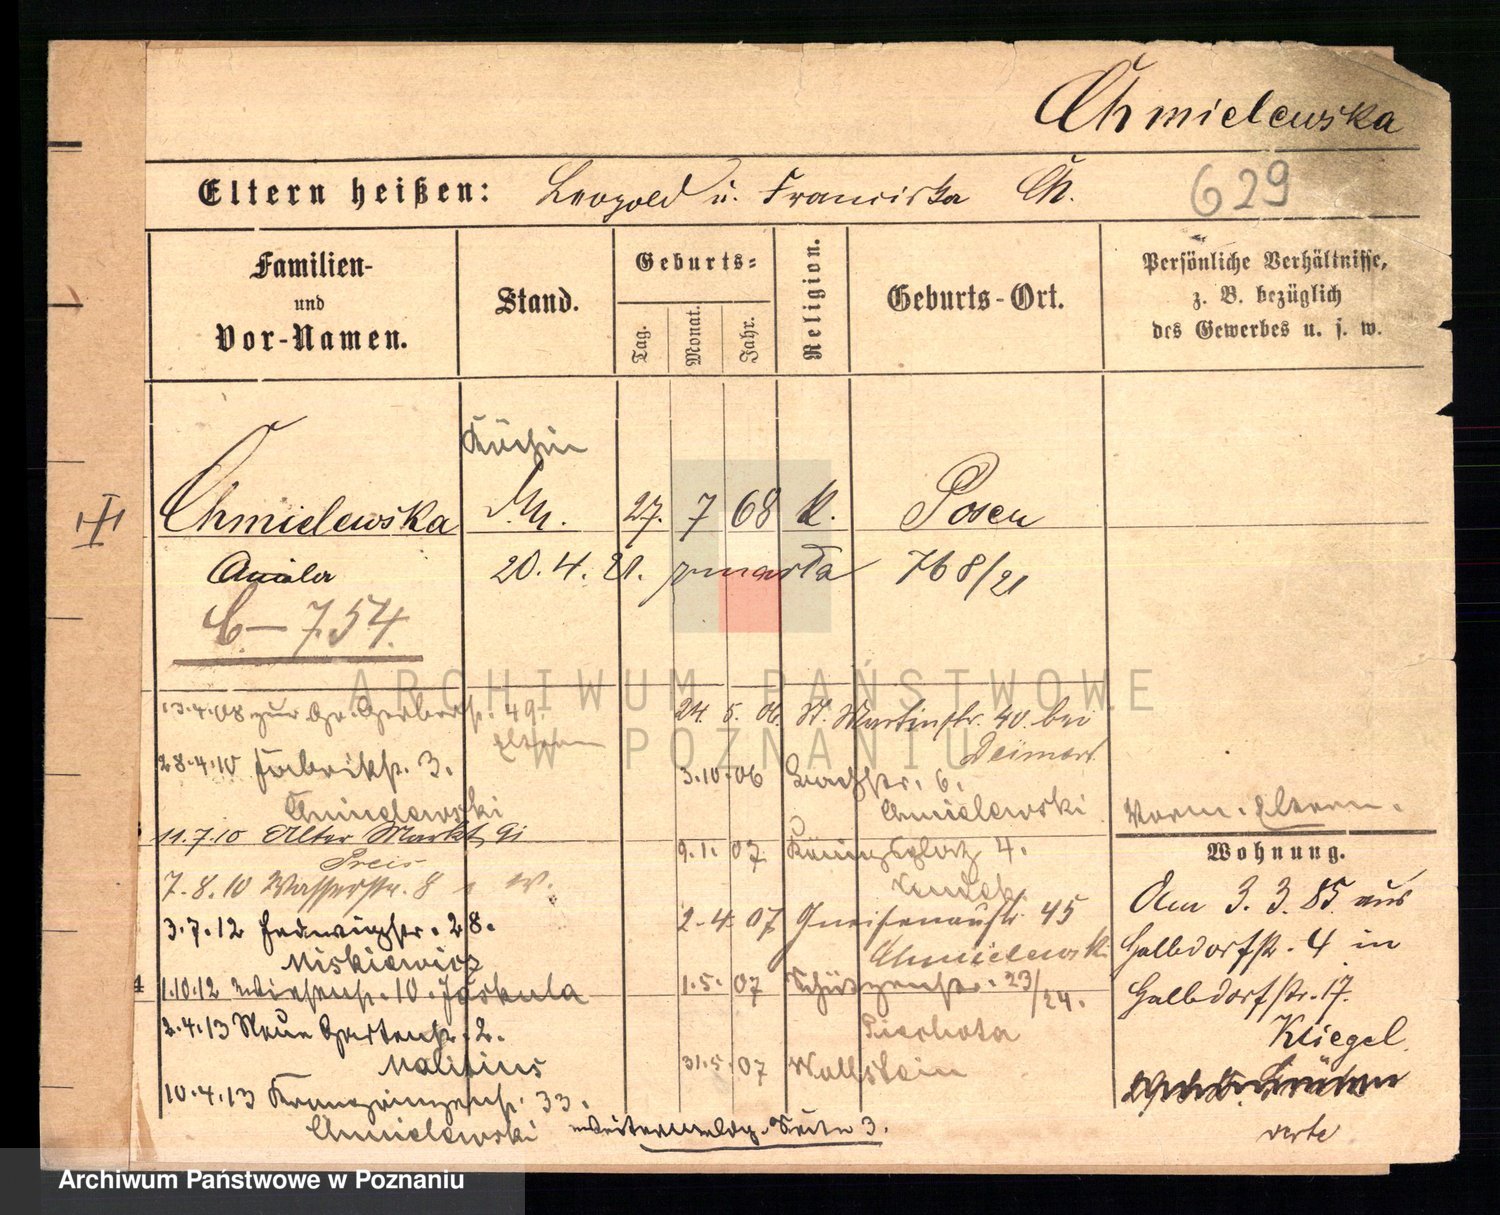 Chmielewska
Eltern heißen: Leopold u. Franciska Ch.
629
Familien- und Vor-Namen.
Stand.
Geburts-
Tag.
Monat.
Jahr.
Religion.
Geburts-Ort.
Persönliche Verhältnisse,
z. B. bezüglich
des Gewerbes u. s. w.
Köchin
Chmielewska
27. 7 68 k. Posen
20.4.21. zmarła 768/21
C-754.
ARCHIWUM PAŃSTWOWE
W POZNANIU
13.4.08 zur Gr. Gerberstr. 49.
Eltern
28.4.10 Fabrikstr. 3.
Chmielewski
11.7.10 Alter Markt 91
Preis
7.8.10 Wasserstr. 8
3.7.12 Hedwigstr. 28.
Miskiewicz
1.10.12 Wiesenstr. 10. Jaskula
2.4.13 Neue Gartenstr. 2.
10.4.13 Kronprinzenstr. 33.
Chmielewski
24. 5. 06. St. Martinstr. 40. bei
3.10.06
6.
Chmielewski
9.1.07 Königsplatz 4.
2.4.07 Gneisenaustr. 45
Chmielewski
1.5.07 Schützenstr. 23/24.
31.5.07 Wollstein
Weitermeldg. Seite 3.
Vorm. Eltern.
Wohnung.
Am 3.3.85 aus
Halbdorfstr. 4 in
Halbdorfstr. 17.
Kliegel
verte
Archiwum Państwowe w Poznaniu